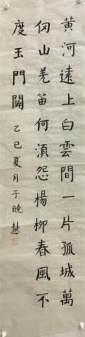 黃河遠上白雲間一片孤城萬
仞山羌笛何須怨楊柳春風不
度玉門關 乙巳夏月